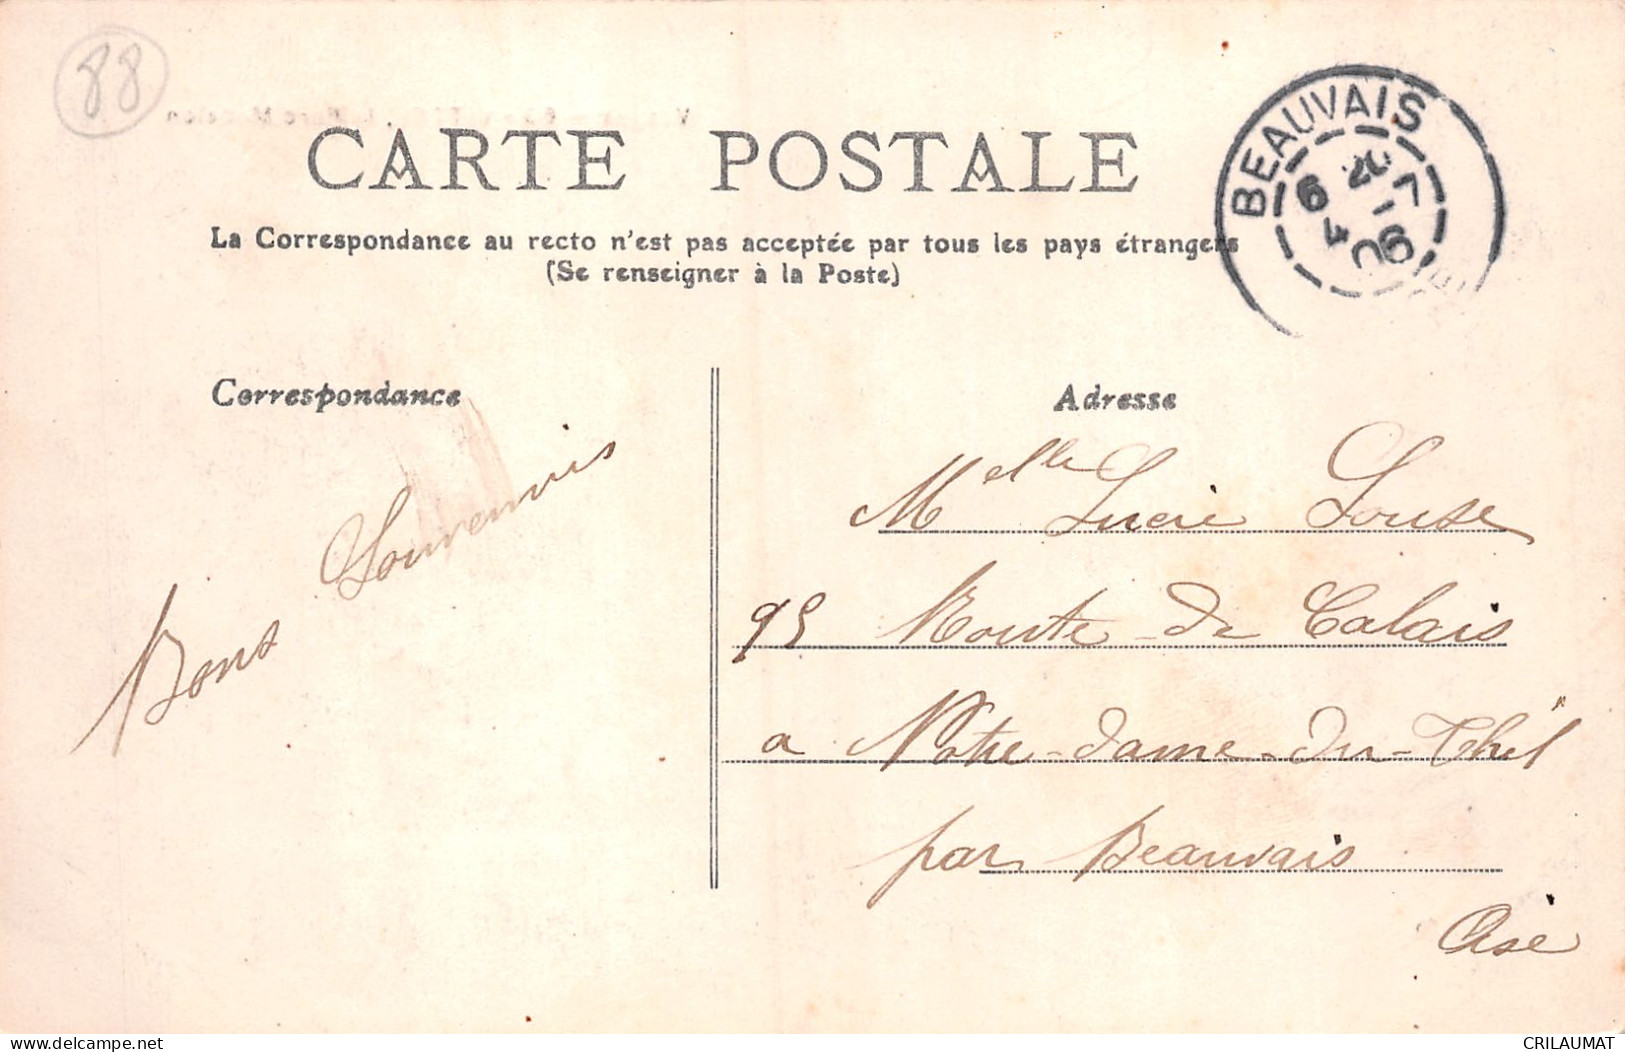 88
CARTE POSTALE
La Correspondance au recto n'est pas acceptée par tous les pays étrangers
(Se renseigner à la Poste)
BEAUVAIS
06
Correspondance
Adresse
Bons Souvenirs
Melle Lucie Louse
95 Route de Calais
a Notre-dame-du-Thil
par Beauvais
Oise
www.delcampe.net
CRILAUMAT